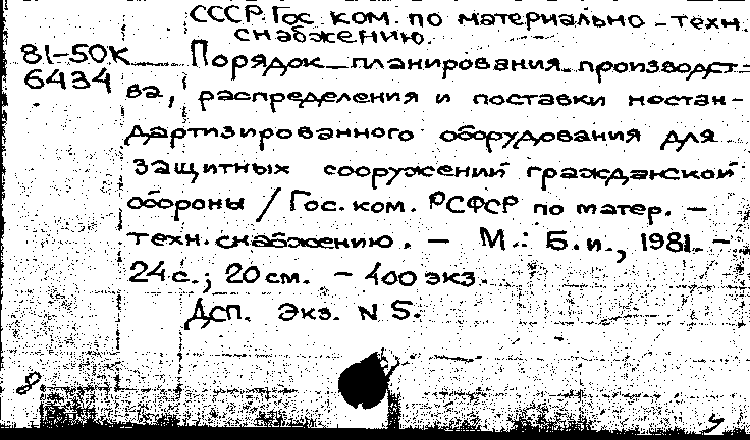 СССР. Гос. ком. по материально-техн.
снабжению.
81-50К
6434
Порядок планирования производст-
ва, распределения и поставки нестан-
дартизированного оборудования для
защитных сооружений гражданской
обороны / Гос. ком. РСФСР по матер.-
техн. снабжению. — М.: Б.и., 1981. —
24 с.; 20 см. — 400 экз.
Дсп. Экз. N 5.
8